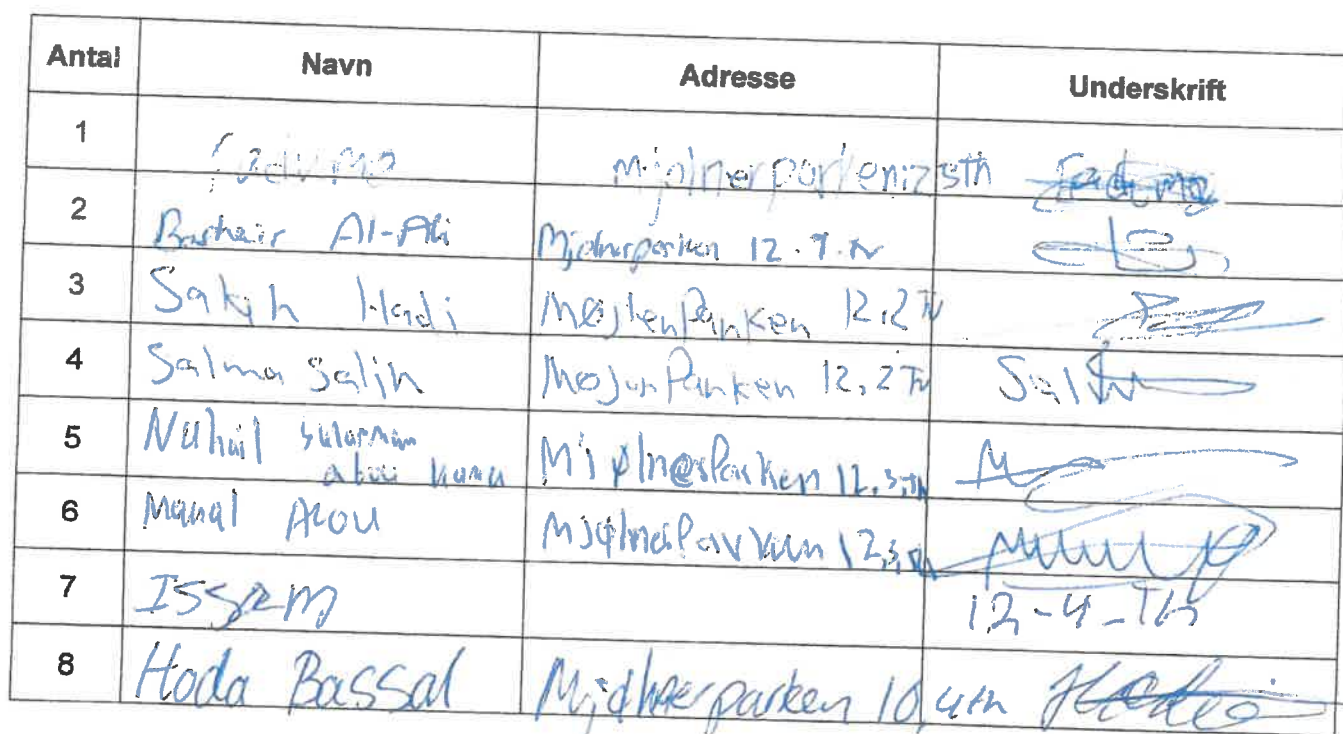 Antal Navn Adresse Underskrift
1 Fadumo Mjølnerparken 12 3th Fadumo
2 Bashair Al-Ali Mjølnerparken 12 . 1. tv
3 Salih Hadi Møjlenparken 12,2 TV
4 Salma Salih Møjonparken 12, 2 TV
5 Nuhail abu Mjølnerparken 12, 3, th
6 Manal Mjølnerparken 12, 3, th
7 Issam 12-4-Th
8 Hoda Bassal Mjølnerparken 10, 4th